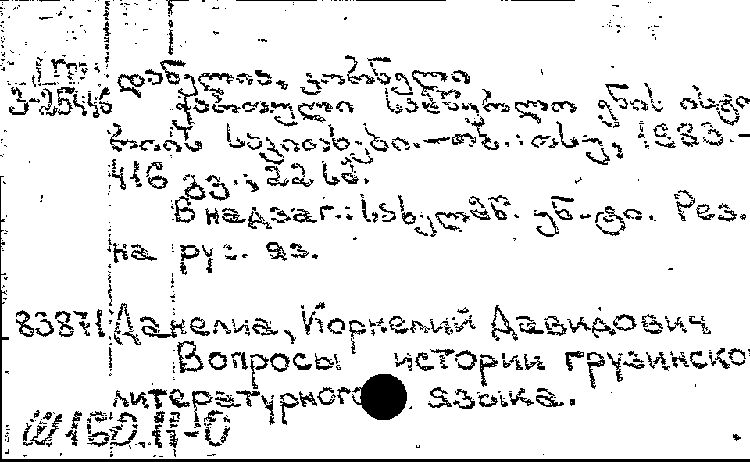 Гр.
დანელია, კორნელი
3-25446
ქართული სამწერლო ენის ისტო
რიის საკითხები.—თბ.: თსუ, 1983.—
416 გვ.; 22 სმ.
В надзаг.: სახელმწ. უნ-ტი. Рез.
на рус. яз.
83871 Данелиа, Корнелий Давидович
Вопросы истории грузинско
литературного языка.
Ш160.11-0